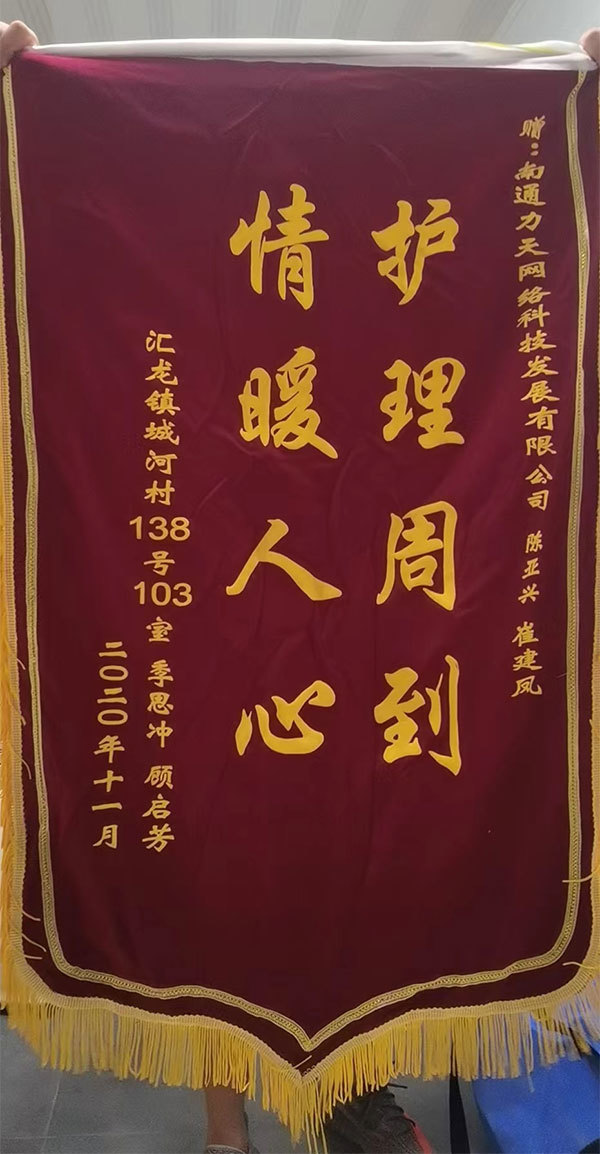 赠：南通力天网络科技发展有限公司 陈亚兴 崔建凤
护理周到
情暖人心
汇龙镇城河村138号103室 季思冲 顾启芳
二〇二〇年十一月